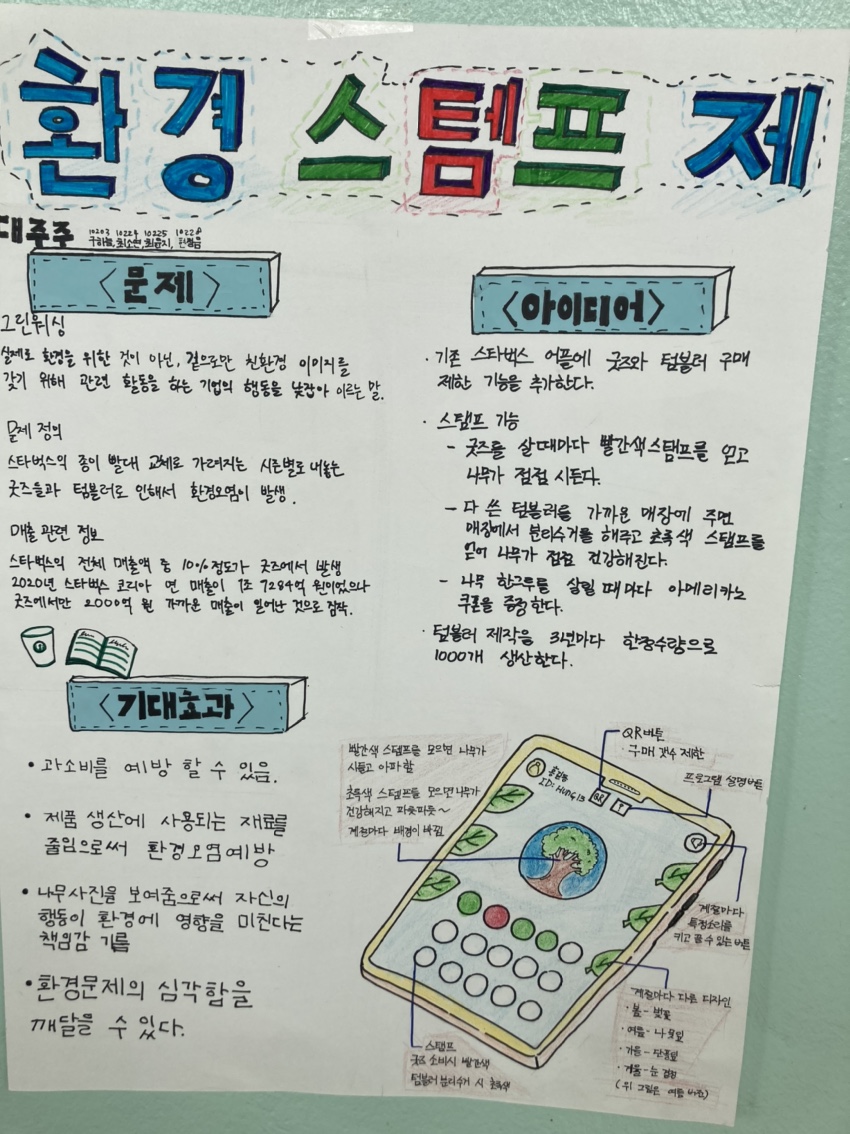 환경 스템프 제
대주주
10203 10224 10225 10228
구하늘, 최소연, 최윤지,
<문제>
그린워싱
실제로 환경을 위한 것이 아닌, 겉으로만 친환경 이미지를
갖기 위해 관련 활동을 하는 기업의 행동을 낮잡아 이르는 말.
문제 정의
스타벅스의 종이 빨대 교체로 가려지는 시즌별로 내놓는
굿즈들과 텀블러로 인해서 환경오염이 발생.
매출 관련 정보
스타벅스의 전체 매출액 중 10%정도가 굿즈에서 발생
2020년 스타벅스 코리아 연 매출이 1조 9284억 원이었으나
굿즈에서만 2000억 원 가까운 매출이 일어난 것으로 짐작.
<기대효과>
• 과소비를 예방 할 수 있음.
• 제품 생산에 사용되는 재료를
줄임으로써 환경오염예방
• 나무사진을 보여줌으로써 자신의
행동이 환경에 영향을 미친다는
책임감 기름
• 환경문제의 심각함을
깨달을 수 있다.
<아이디어>
· 기존 스타벅스 어플에 굿즈와 텀블러 구매
제한 기능을 추가한다.
· 스탬프 기능
- 굿즈를 살때마다 빨간색스탬프를 얻고
나무가 점점 시든다.
- 다 쓴 텀블러를 가까운 매장에 주면
매장에서 분리수거를 해주고 초록색 스탬프를
얻어 나무가 점점 건강해진다.
- 나무 한그루를 살릴 때마다 아메리카노
쿠폰을 증정한다.
· 텀블러 제작을 3년마다 한정수량으로
1000개 생산한다.
빨간색 스템프를 모으면 나무가
시들고 아파함
초록색 스템프를 모으면 나무가
건강해지고 파릇파릇~
계절마다 배경이 바뀜
QR버튼
· 구매 갯수 제한
프로그램 설명버튼
홍길동
ID: HUNG13
QR
?
계절마다
특정소리를
키고 끌 수 있는 버튼
계절마다 다른 디자인
· 봄 - 벚꽃
· 여름 - 나뭇잎
· 가을 - 단풍잎
· 겨울 - 눈 결정
(위 그림은 여름 버전)
스탬프
굿즈 소비시 빨간색
텀블러 분리수거 시 초록색